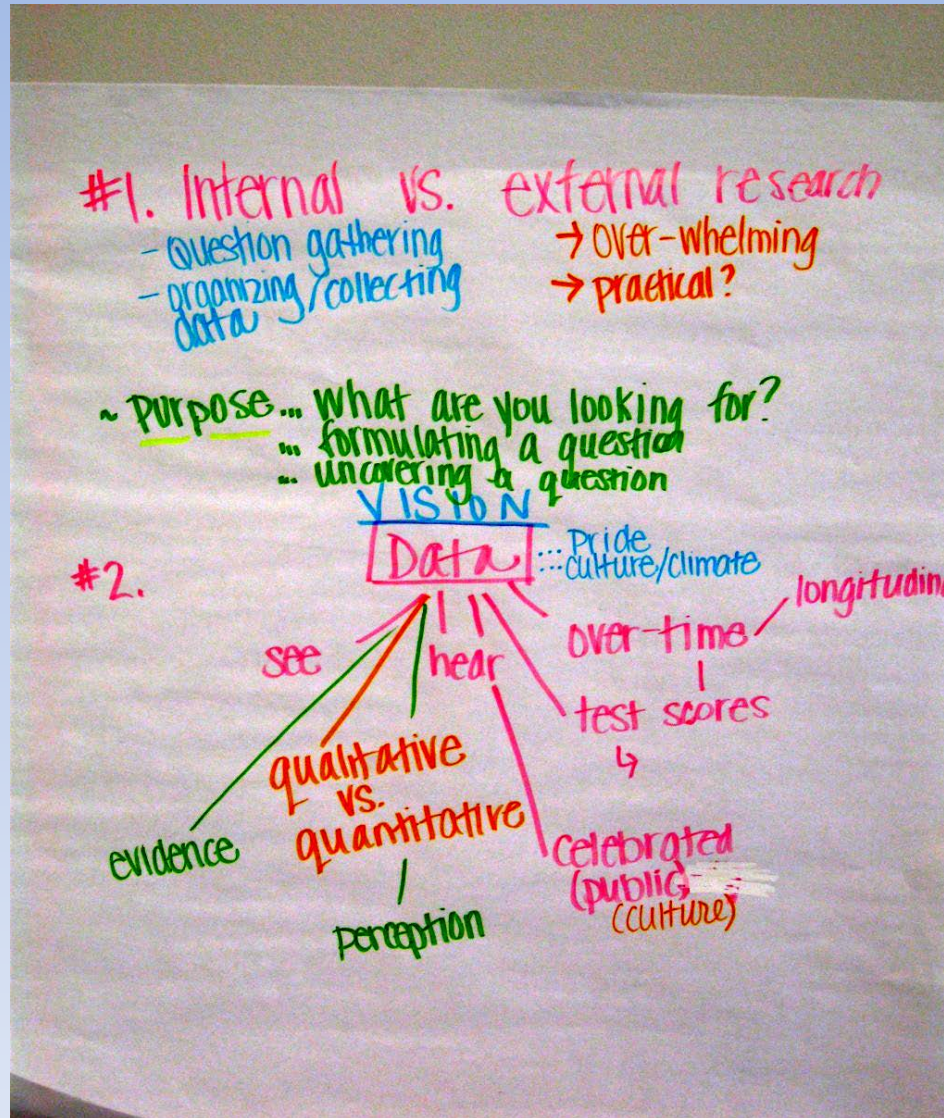 #1. Internal vs. external research
- Question gathering
- organizing/collecting
data
→ over-whelming
→ practical?
~ Purpose... What are you looking for?
... formulating a question
... uncovering a question
VISION
#2.
Data
... Pride
... culture/climate
see
hear
over-time
longitudin
test scores
↳
qualitative
vs.
quantitative
evidence
perception
celebrated
(public)
(culture)